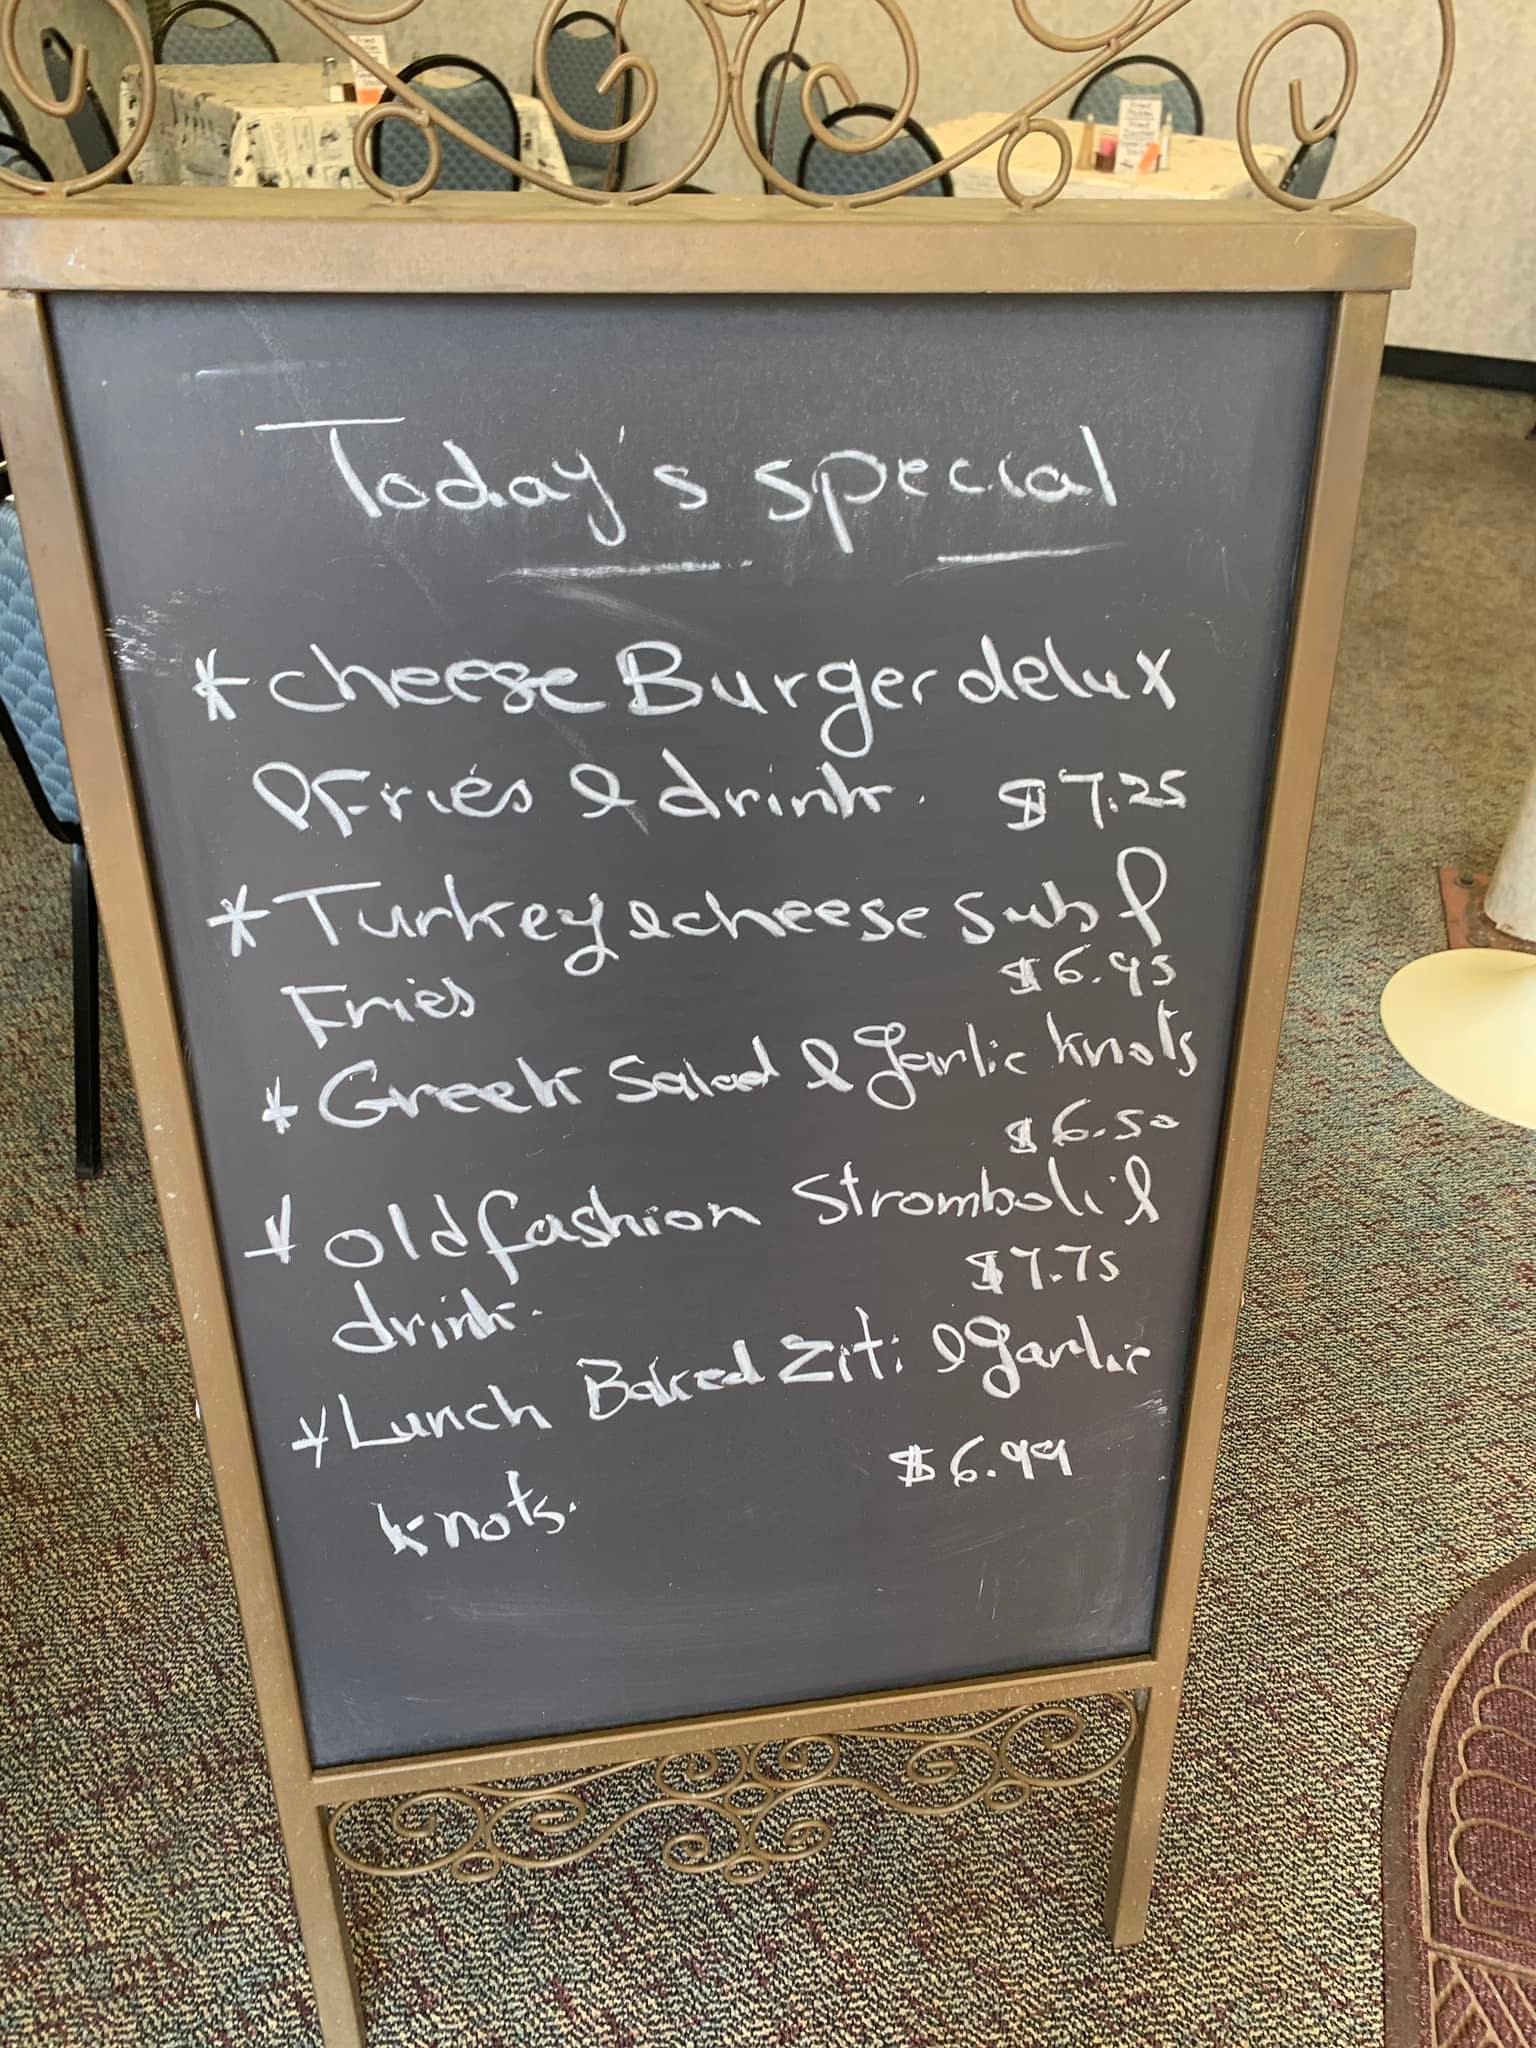 Today's special
* cheese Burger delux
& Fries & drink. $7.25
* Turkey & cheese sub &
Fries $6.95
* Greek Salad & garlic knots
$6.50
* old fashion Stromboli &
drink. $7.75
* Lunch Baked Ziti & garlic
knots. $6.99